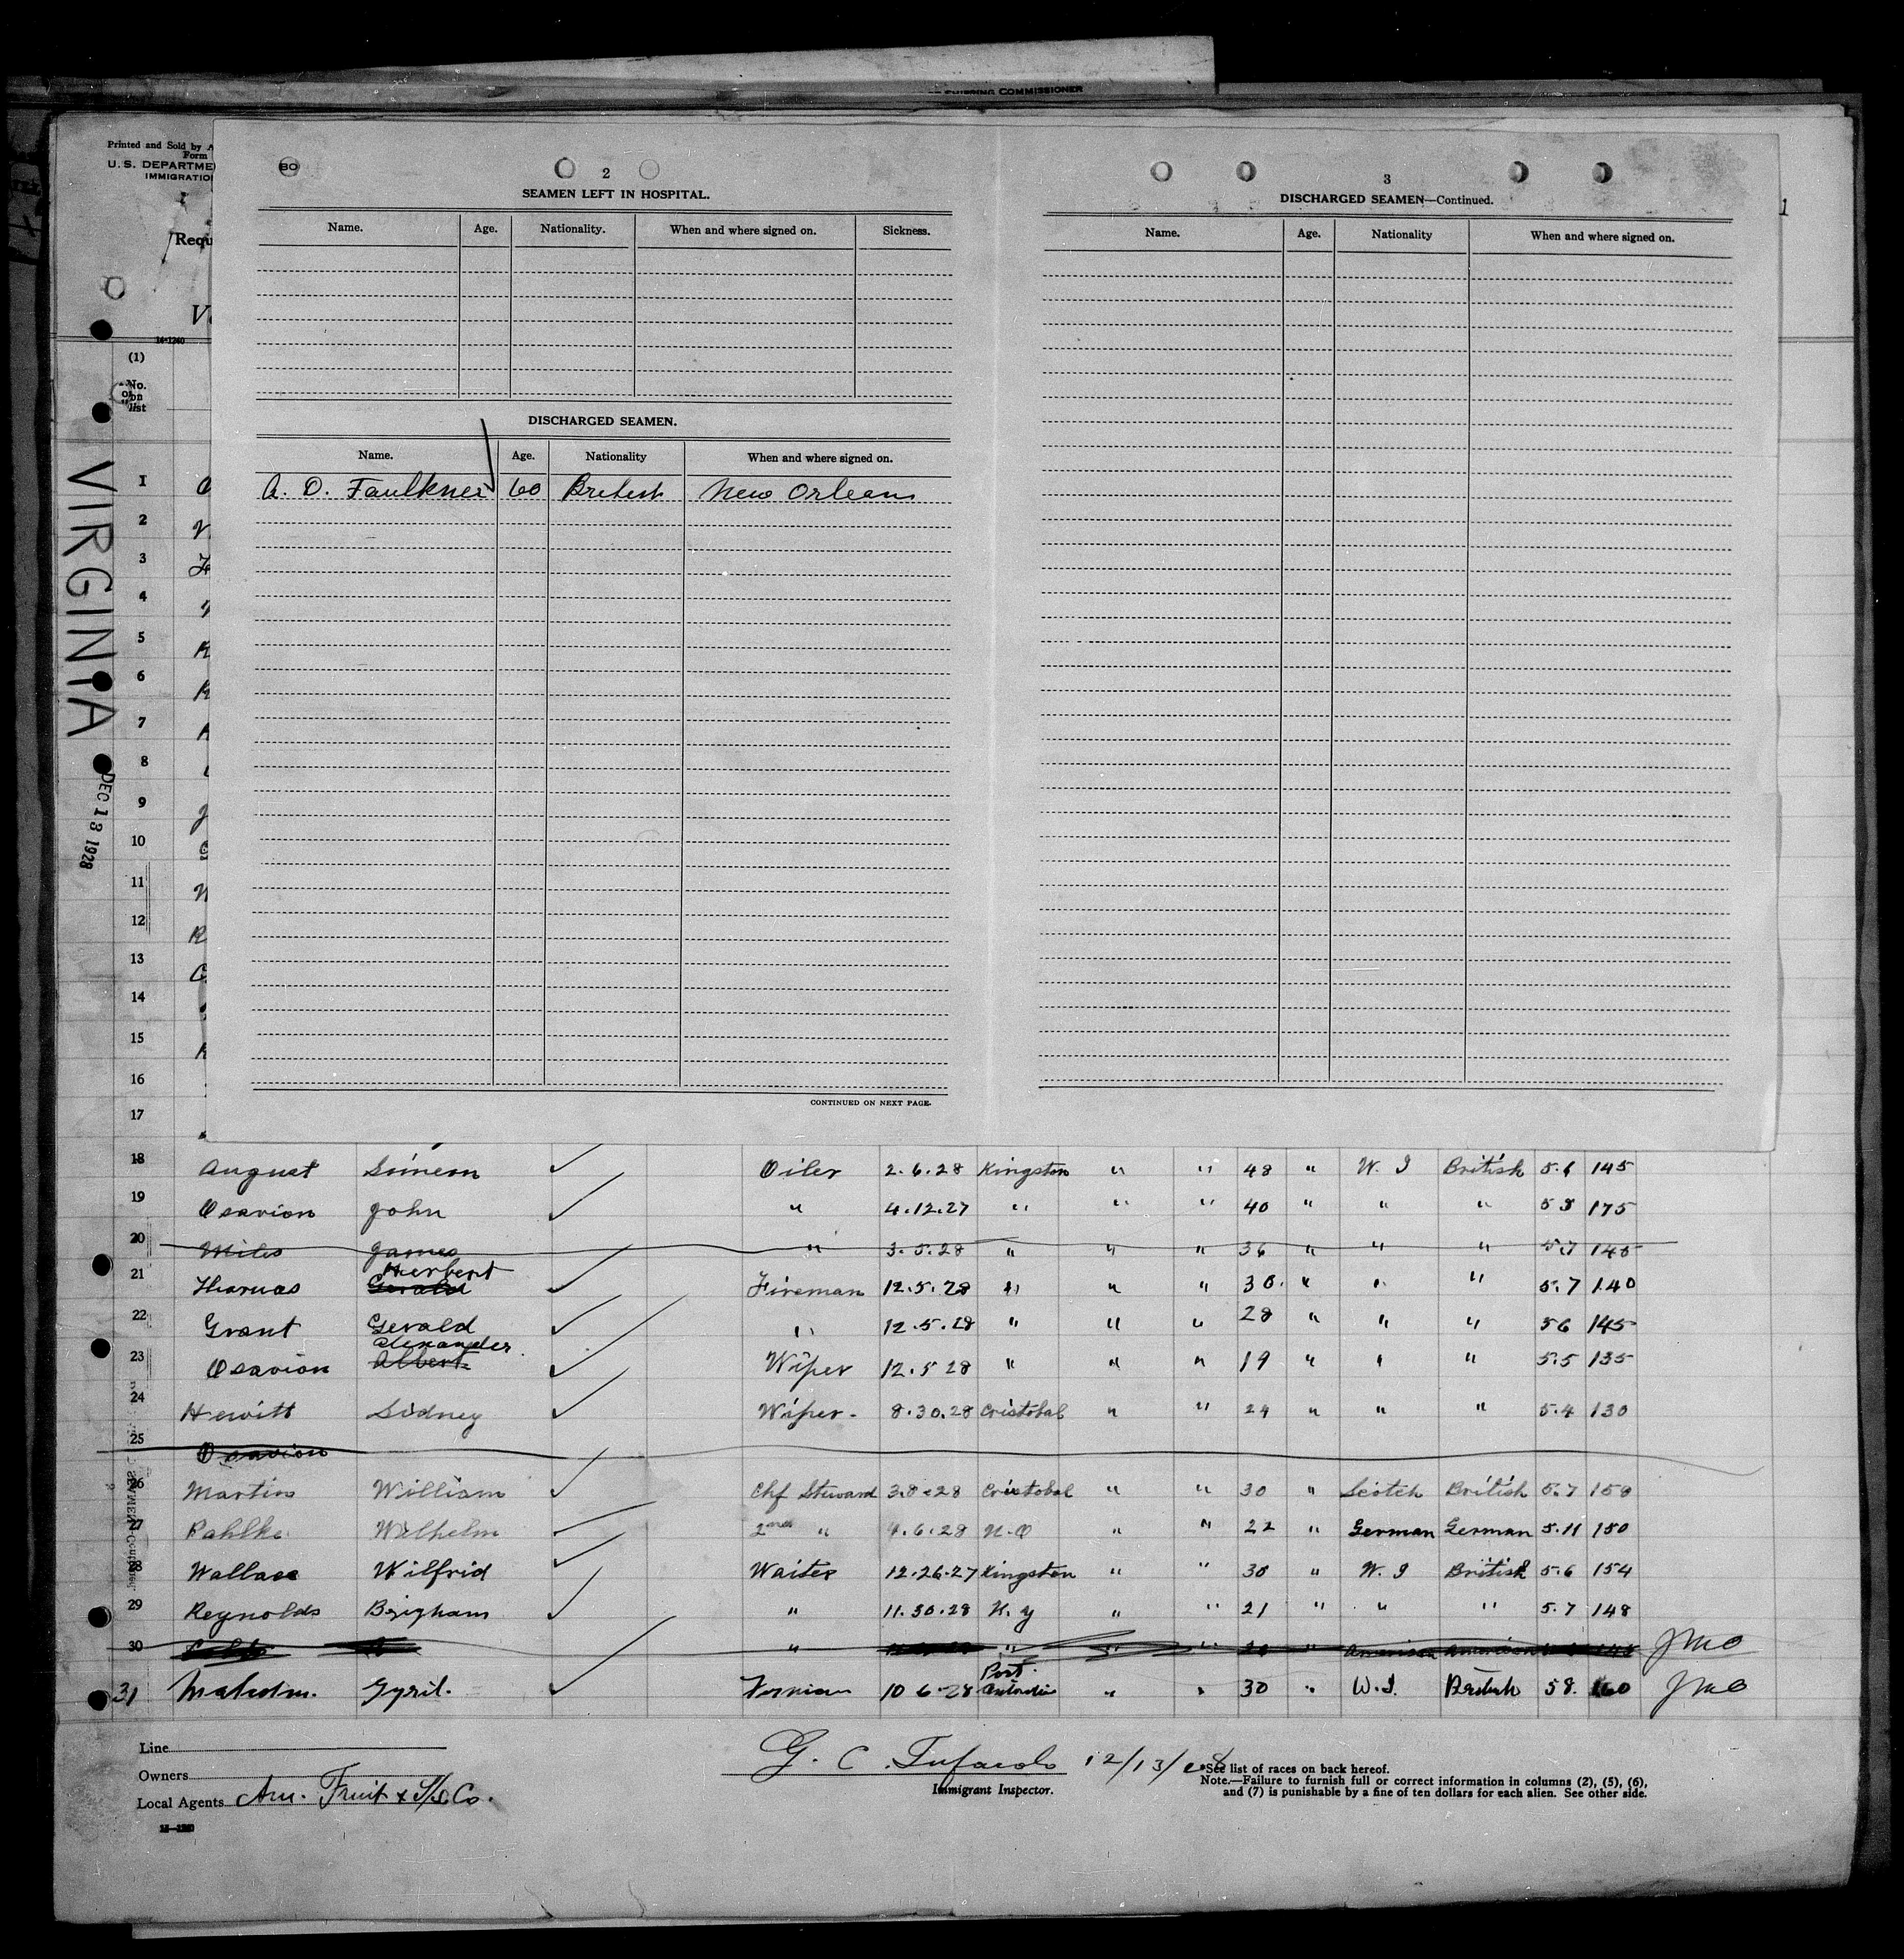 SHIPPING COMMISSIONER
Printed and Sold by
Form
U. S. DEPARTME
IMMIGRATIO
Requ
14-1240
(1)
No. on list
VIRGINIA
DEC 13 1928
2
SEAMEN LEFT IN HOSPITAL.
Name. Age. Nationality. When and where signed on. Sickness.
DISCHARGED SEAMEN.
Name. Age. Nationality When and where signed on.
A. D. Faulkner 60 British New Orleans
CONTINUED ON NEXT PAGE.
3
DISCHARGED SEAMEN—Continued.
Name. Age. Nationality When and where signed on.
1
1
2
3
4
5
6
7
8
9
10
11
12
13
14
15
16
17
18 August Simeon Oiler 2.6.28 Kingston " " 48 " W. I British 5.6 145
19 Osavion John " 4.12.27 " " " 40 " " " 5 8 175
20 Miles James " 3.5.28 " " " 36 " " " 5.7 145
Herbert
21 Thomas Gerald Fireman 12.5.28 " " " 30. " " " 5.7 140
22 Grant Gerald " 12.5.28 " " " 28 " " " 5 6 145
Alexander
23 Osavion Albert Wiper 12.5 28 " " " 19 " " " 5.5 135
24 Hewitt Sidney Wiper. 8.30.28 Cristobal " " 24 " " " 5.4 130
25 Osavion
26 Martin William Chf Steward 3.8.28 Cristobal " " 30 " Scotch British 5.7 150
27 Pahlke Wilhelm 2nd " 4.6.28 N.O " " 22 " German German 5.11 150
28 Wallace Wilfrid Waiter 12.26.27 Kingston " " 30 " W. I British 5.6 154
29 Reynolds Brigham " 11.30.28 N. Y " " 21 " " " 5.7 148
30 " " " " " American American
Port
31 Malcolm. Cyril. Fireman 10 6.28 Antonio " " 30 " W. I. British 5 8. 160
Line
Owners
Local Agents Am. Fruit & S/S Co.
G. C. 12/13/28
Immigrant Inspector.
See list of races on back hereof.
Note.—Failure to furnish full or correct information in columns (2), (5), (6),
and (7) is punishable by a fine of ten dollars for each alien. See other side.